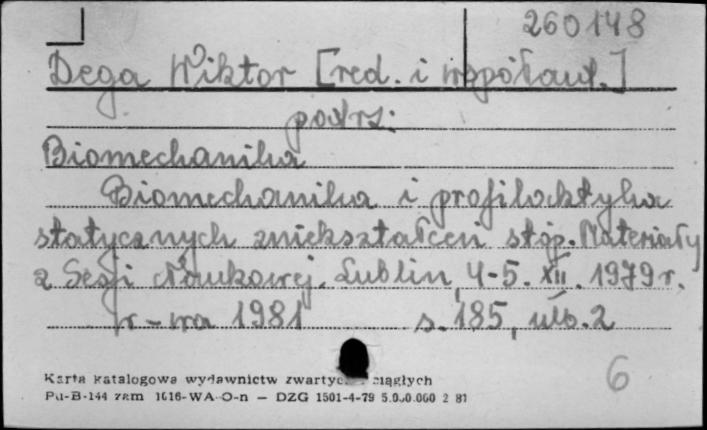 260148
Dega Wiktor [red. i współaut.]
patrz:
Biomechanika
Biomechanika i profilaktyka
statycznych zniekształceń stóp. Materiały
z Sesji Naukowej. Lublin, 4-5. XII. 1979 r.
W-wa 1981 s. 185, ulb. 2
6
Karta katalogowa wydawnictw zwartych ciągłych
Pu-B-144 zam 1616-WA-O-n — DZG 1501-4-79 5.000.000 2 81